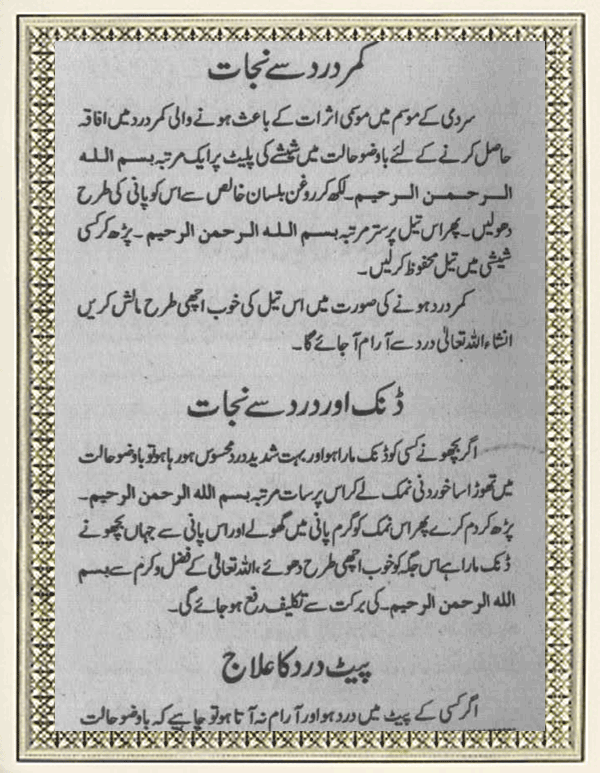 کمر درد سے نجات
سردی کے موسم میں موسمی اثرات کے باعث ہونے والی کمر درد میں افاقہ
حاصل کرنے کے لئے باوضو حالت میں شیشے کی پلیٹ پر ایک مرتبہ بسم اللہ
الرحمن الرحیم۔ لکھ کر روغن بلسان خالص سے اس کو پانی کی طرح
دھولیں۔ پھر اس تیل پر ستر مرتبہ بسم اللہ الرحمن الرحیم۔ پڑھ کر کسی
شیشی میں تیل محفوظ کر لیں۔
کمر درد ہونے کی صورت میں اس تیل کی خوب اچھی طرح مالش کریں
انشاء اللہ تعالٰی درد سے آرام آ جائے گا۔
ڈنک اور درد سے نجات
اگر بچھو نے کسی کو ڈنک مارا ہو اور بہت شدید درد محسوس ہو رہا ہو تو باوضو حالت
میں تھوڑا سا خوردنی نمک لے کر اس پر سات مرتبہ بسم اللہ الرحمن الرحیم۔
پڑھ کر دم کرے پھر اس نمک کو گرم پانی میں گھولے اور اس پانی سے جہاں بچھو نے
ڈنک مارا ہے اس جگہ کو خوب اچھی طرح دھوئے، اللہ تعالٰی کے فضل و کرم سے بسم
اللہ الرحمن الرحیم۔ کی برکت سے تکلیف رفع ہو جائے گی۔
پیٹ درد کا علاج
اگر کسی کے پیٹ میں درد ہو اور آرام نہ آتا ہو تو چاہیے کہ باوضو حالت